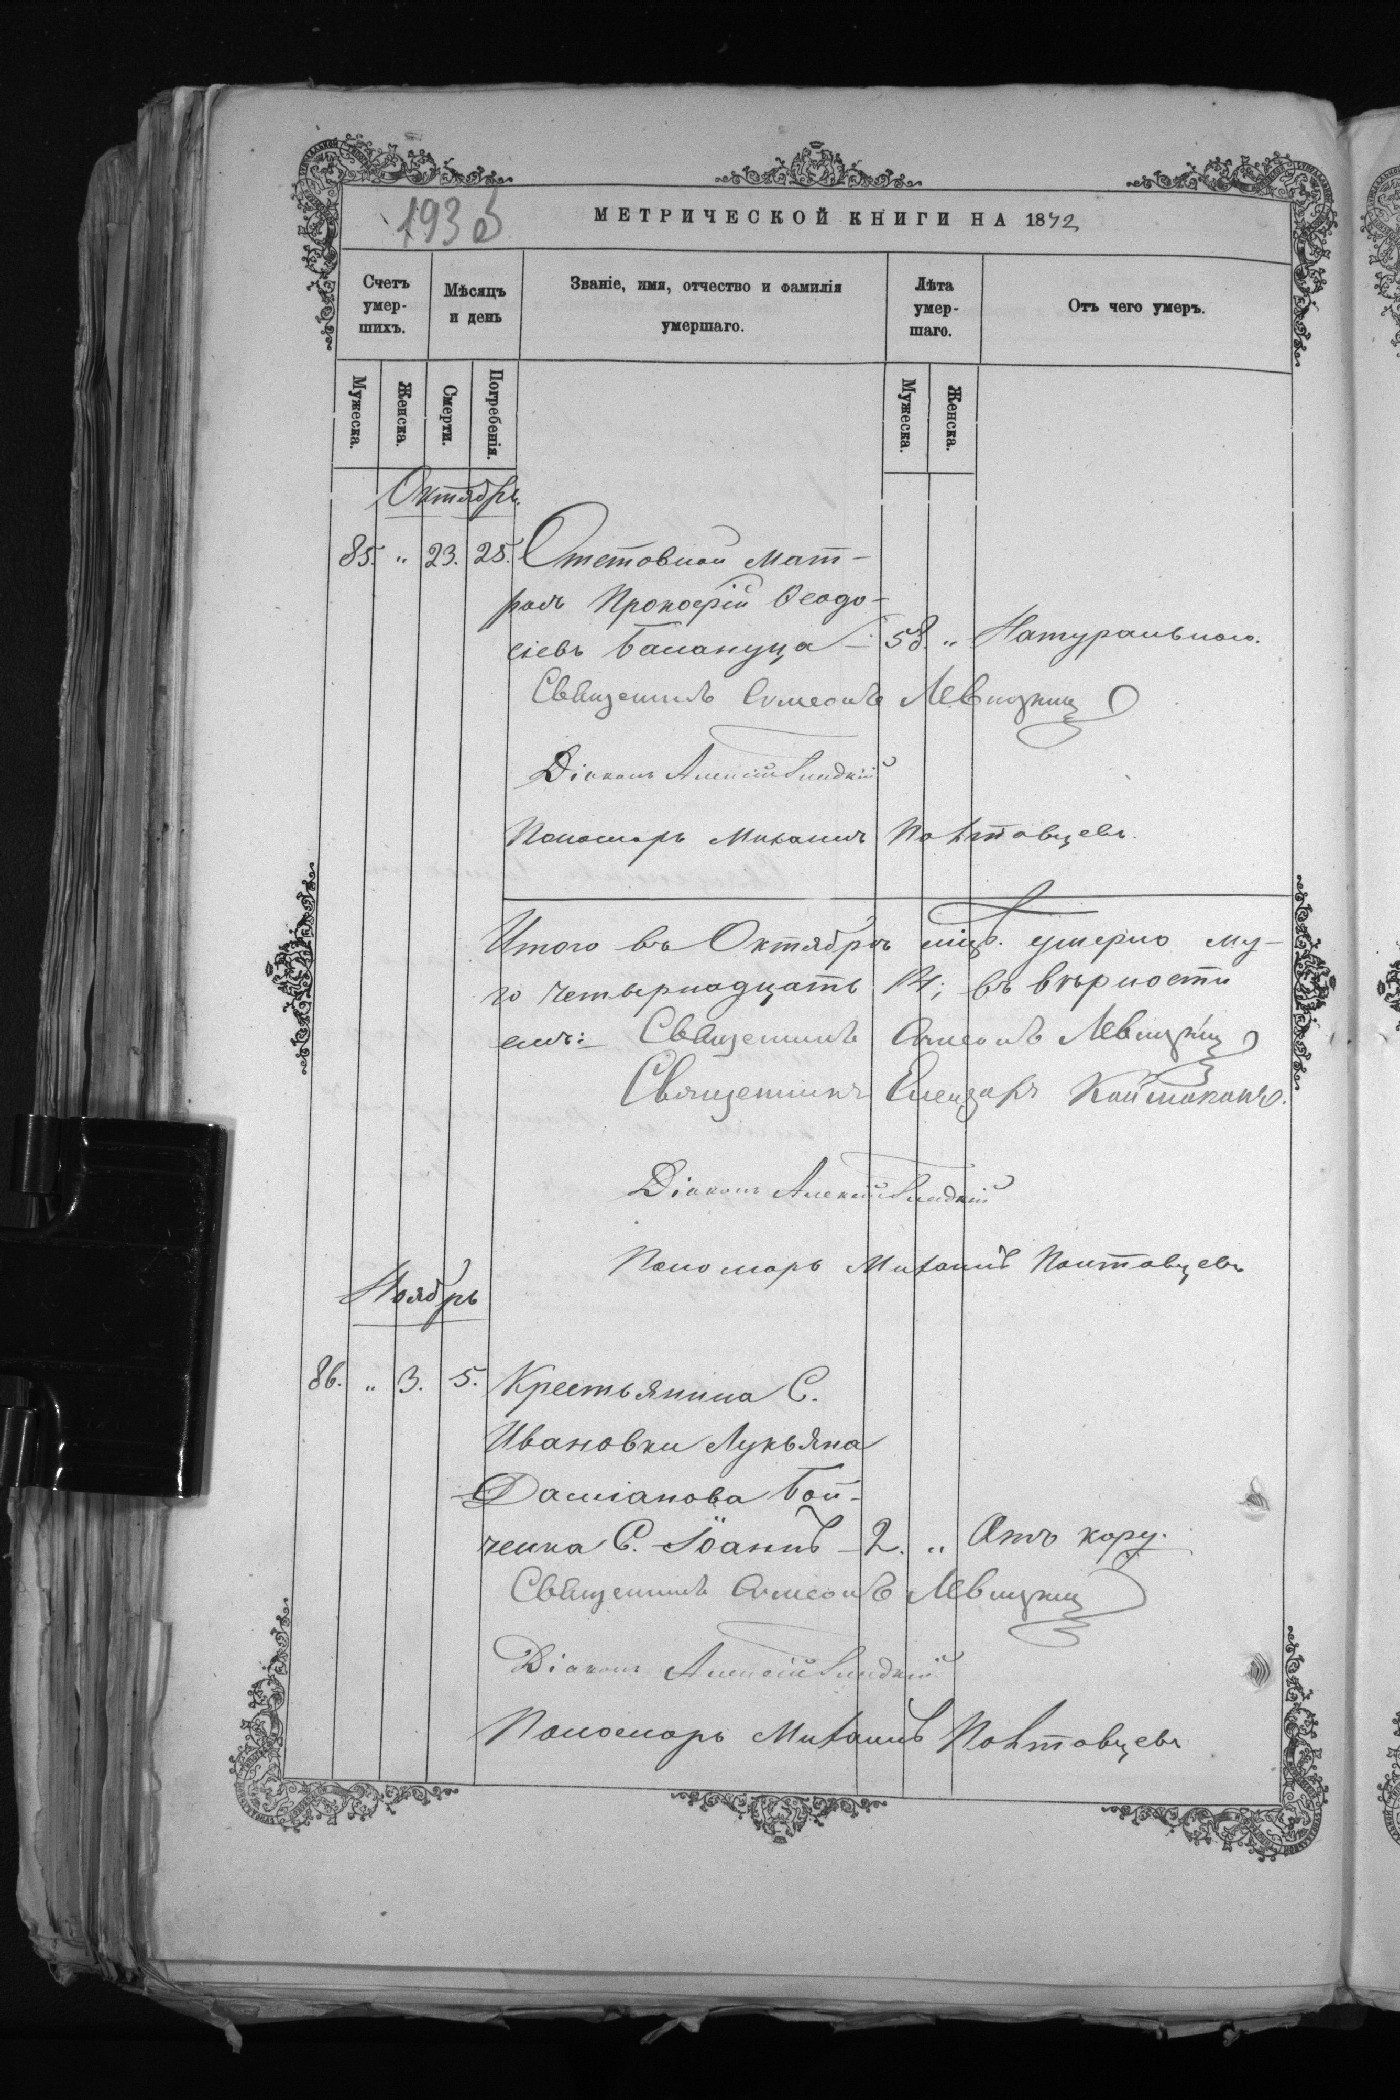 193 об
МЕТРИЧЕСКОЙ КНИГИ НА 1872
Счетъ умер-шихъ.
Мѣсяцъ и день
Званіе, имя, отчество и фамилія умершаго.
Лѣта умер-шаго.
Отъ чего умеръ.
Мужеска.
Женска.
Смерти.
Погребенія.
Мужеска.
Женска.
Октябрь.
85. " 23. 25. Отставной мат-
росъ Прокофій Ѳеодо-
сіевъ Балануца — 58. " Натурально.
Священникъ Симеонъ Левицкій
Діаконъ Алексій
Пономарь Михаилъ Полтавцевъ.
Итого въ Октябрѣ мцѣ. умерло му-
го четырнадцать 14; въ вѣрности
семъ: Священникъ Симеонъ Левицкій
Священникъ Елеазаръ
Діаконъ Алексій
Пономарь Михаилъ Полтавцевъ
Ноябрь
86. " 3. 5. Крестьянина С.
Ивановки Лукьяна
Даміанова Бой-
ченка С. Іоаннъ — 2. " Отъ кору.
Священникъ Симеонъ Левицкій
Діаконъ Алексій
Пономарь Михаилъ Полтавцевъ